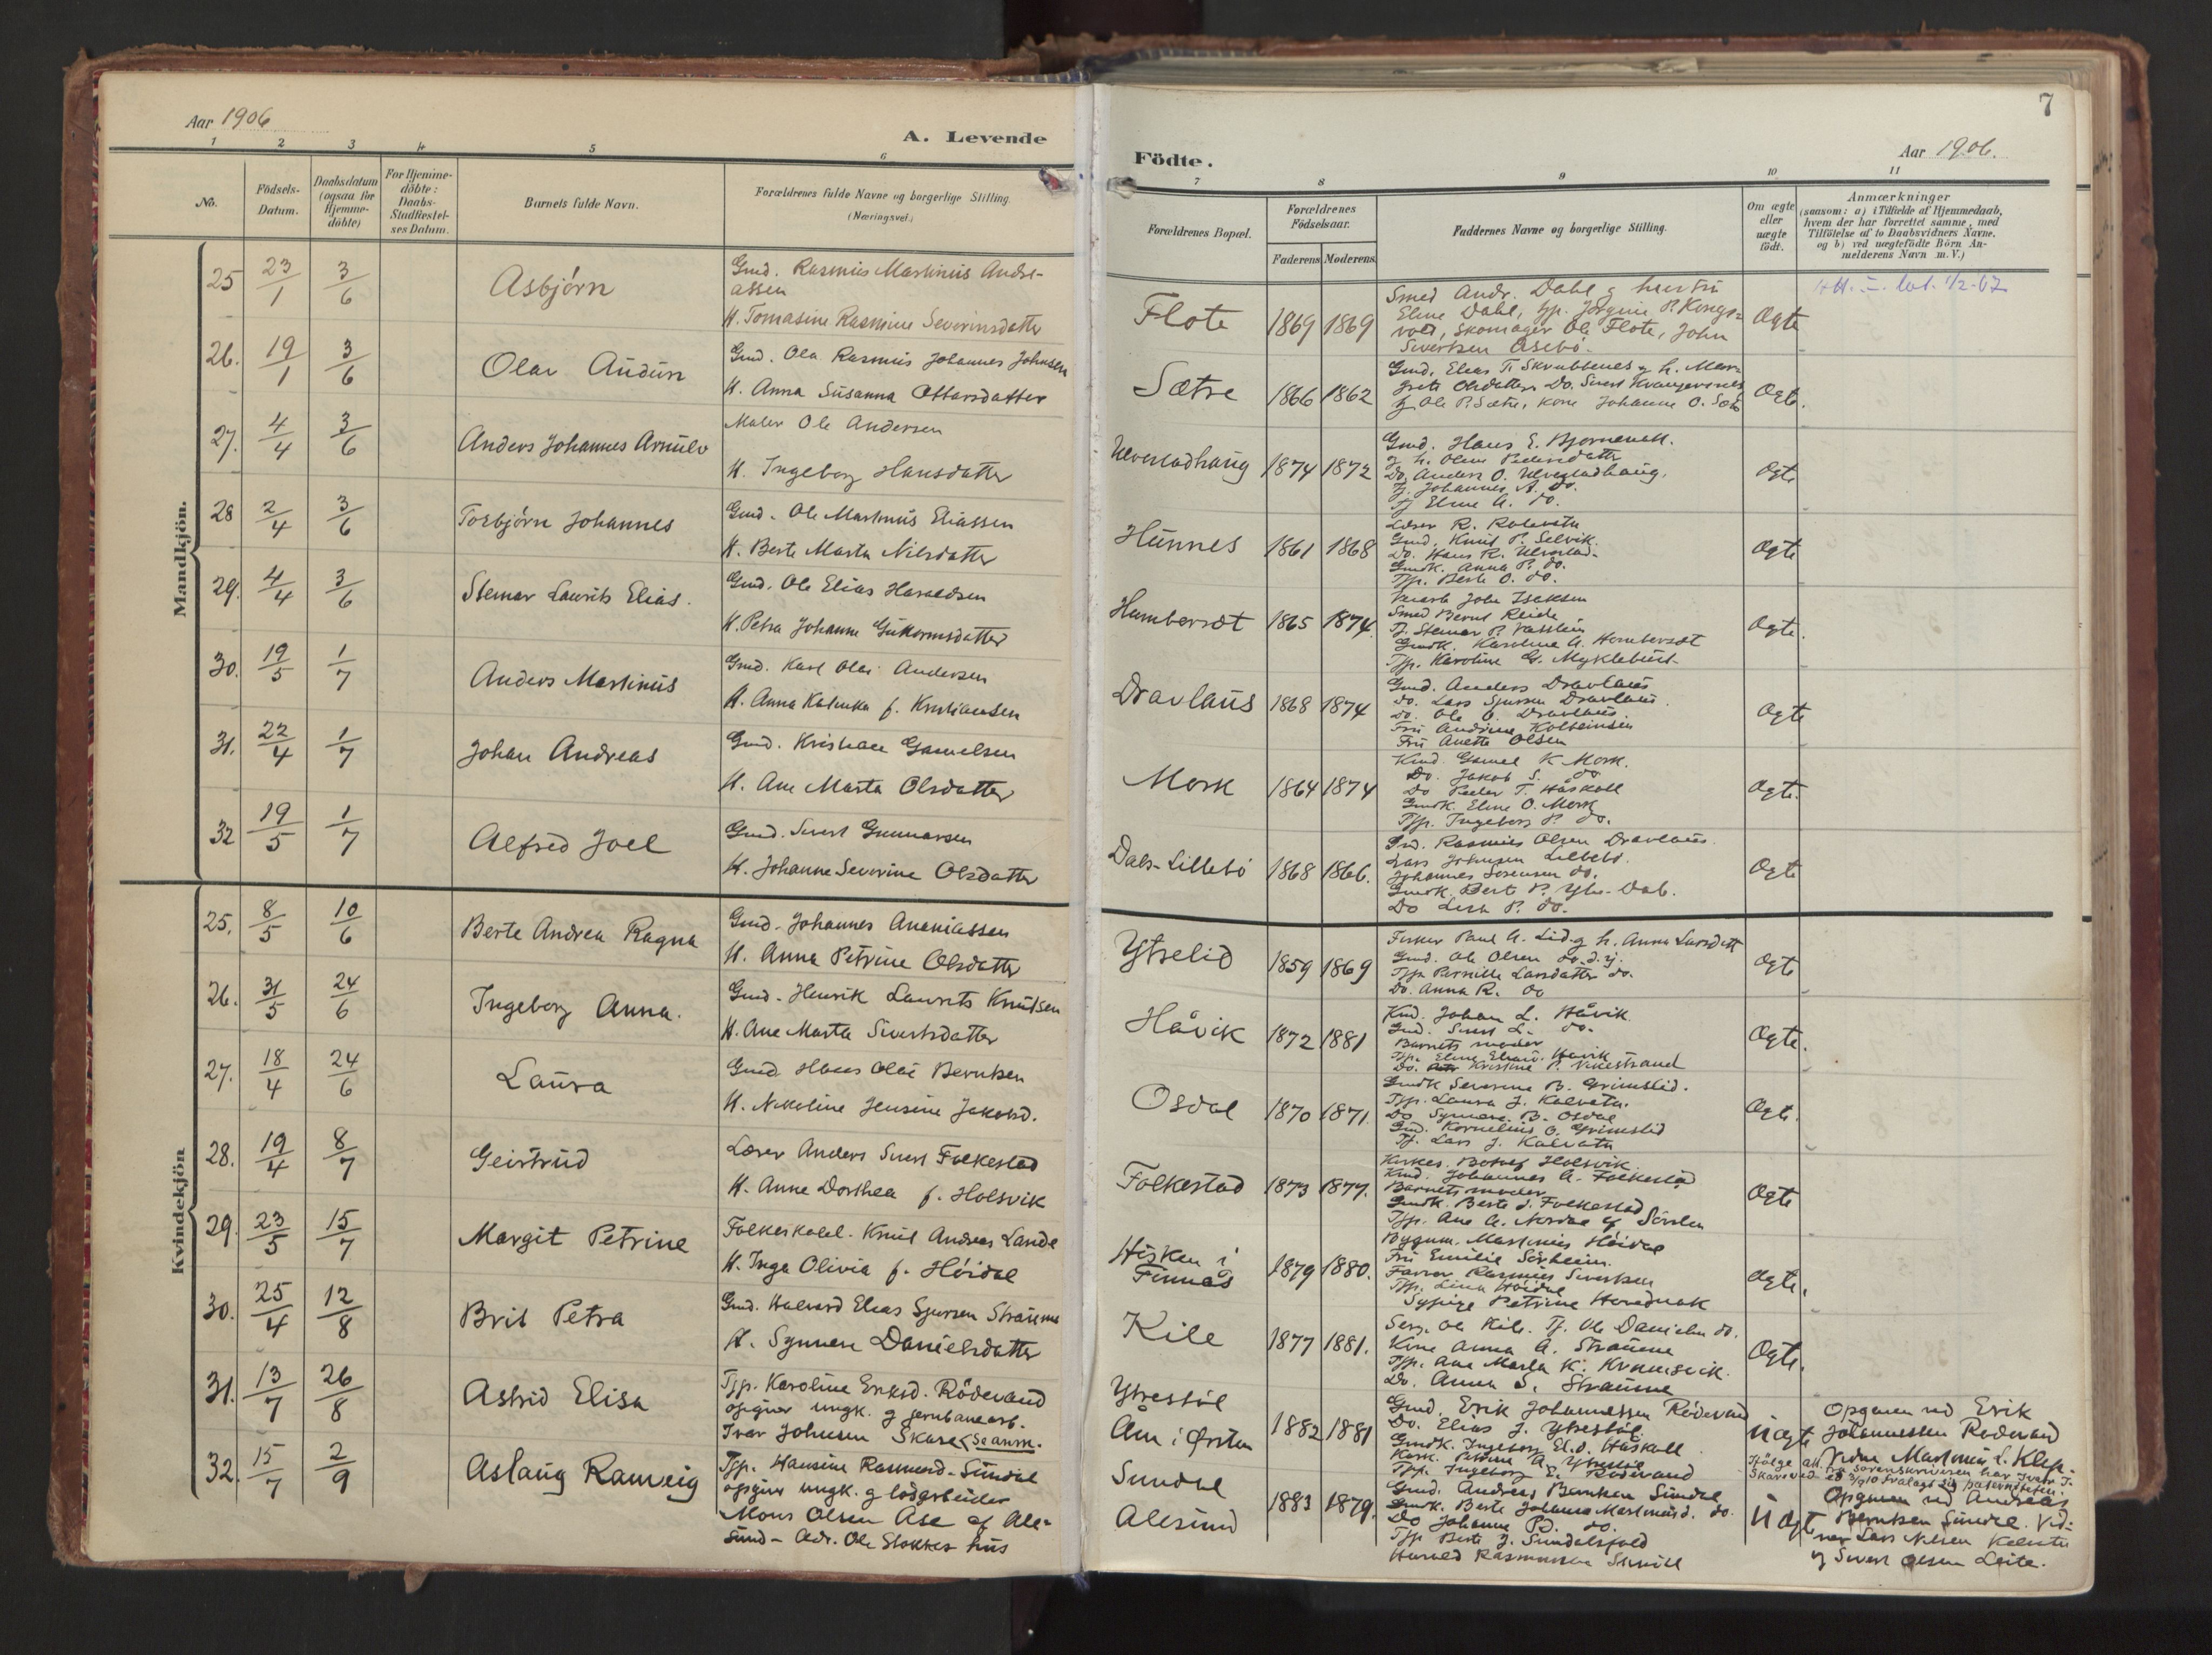 Aar 1906
A. Levende
1 2 3 4 5 6
No.
Födsels-Datum.
Daabsdatum (ogsaa for Hjemmedöbte)
For Hjemmedöbte: Daabs-Stadfæstelses Datum.
Barnets fulde Navn.
Forældrenes fulde Navne og borgerlige Stilling.
(Næringsvei.)
Mandkjön.
25 23/1 3/6 Asbjörn
Gmd. Rasmus Martinus Andreassen
H. Tomasine Rasmine Severinsdatter
26. 19/1 3/6 Olav Audun
Gmd. Ola Rasmus Johannes Johnsen
H. Anna Susanna Ottarsdatter
27. 4/4 3/6 Anders Johannes Arnulv
Maler Ole Andersen
H. Ingeborg Hansdatter
28 2/4 3/6 Torbjörn Johannes
Gmd. Ole Martinus Eliassen
H. Berte Marta Nilsdatter
29. 4/4 3/6 Steinar Laurits Elias.
Gmd. Ole Elias Haraldsen
H. Petra Johanne Guttormsdatter
30. 19/5 1/7 Anders Martinus
Gmd. Karl Olai Andersen
H. Anna Katinka f. Kristiansen
31. 22/4 1/7 Johan Andreas
Gmd. Kristian Gamelsen
H. Ane Marta Olsdatter
32 19/5 1/7 Alfred Joel
Gmd. Sivert Gunnarsen
H. Johanne Severine Olsdatter
Kvindekjön
25. 8/5 10/6 Berte Andrea Ragna
Gmd. Johannes Ananiassen
H. Anna Petrine Olsdatter
26. 31/5 24/6 Ingeborg Anna.
Gmd. Henrik Laurits Knutsen
H. Ane Marta Sivertsdatter
27. 18/4 24/6 Laura
Gmd. Hans Olai Berntsen
H. Nikoline Jensine Jakobsd.
28. 19/4 8/7 Geirtrud
Lærer Anders Sivert Folkestad
H. Anne Dorthea f. Holsvik
29. 23/5 15/7 Margit Petrine
Folkeskolel. Knut Andreas Lande
H. Inga Olivia f. Höidal
30. 25/4 12/8 Brit Petra
Gmd. Halvard Elias Sjursen Straume
H. Synnere Danielsdatter
31. 13/7 26/8 Astrid Elisa
Tjp. Karoline Eriksd. Rödevand
opgiver ungk. g jernbanearb.
Ivar Johnsen Skare (Se anm.
32. 15/7 2/9 Aslaug Ranveig
Tjp. Hansine Rasmusd. Sundal
opgiver ungk. g løsarbeider
Mons Olsen Ase af Ale-
sund - Adr. Ole Stokkes hus
7
Födte.
Aar 1906.
7 8 9 10 11
Forældrenes Bopæl.
Forældrenes Födselsaar.
Faderens Moderens
Faddernes Navne og borgerlige Stilling.
Om ægte eller uægte födt.
Anmærkninger
(saasom: a) i Tilfælde af Hjemmedaab,
hvem der har forrettet samme, med
Tilföielse af to Daabsvidners Navne,
og b) ved uægtefödte Börn An-
melderens Navn m.V.)
Flote 1869 1869
Smed Andr. Dahl g hustru
Eline Dahl, tjp. Jörgine P. Kongs-
vold, Skomager Ole Flote, John
Sivertsen Åsebö.
Ægte
Sætre 1866 1862
Gmd. Elias T. Skrubbenes g h. Mar-
grete Olsdatter, Do. Sivert Kvangersnes
Tj. Ole P. Sætre, kone Johanne O. Sætre
Ægte.
Ulvestadhaug 1874 1872
Gmd. Hans E. Bjørnenak.
g h. Oline Pedersdatter
Do. Anders O. Ulvestadhaug.
Tj. Johannes A. do.
Tj Eline A. do.
Ægte
Hunnes 1861 1868
Lærer R. Rotevatn
Gmd. Knut P. Selvik.
Do. Hans R. Ulvestad.
Gmdk. Anna P. do.
Tjp. Berte O. do.
Ægte
Humberset 1865 1874.
John Isaksen
Smed Bernt Reide
Tj. Steinar P.
Gmdk. Karoline A. Homberset
Tjp. Karoline G. Myklebust
Ægte.
Dravlaus 1868 1874
Gmd. Anders Dravlaus
do. Lars Sjursen Dravlaus.
do. Ole O. Dravlaus.
Fru Andrine Kolbeinsen
Fru Anette Olsen
Ægte
Mork 1864 1874
Kmd. Gamel K Mork.
Do. Jakob S. do
Do Peder T. Håskoll
Gmdk. Eline O. Mork
Tjp. Ingeborg P. do.
Ægte.
Dals-Lillebö 1868 1866.
Gmd. Rasmus Olsen Dravlaus.
Lars Johnsen Lillebö.
Johannes Sörensen do.
Gmdk. Berte P. Ytre-Dal.
Do Lisa P. do.
Ægte
Ytrelid 1859 1869
Fisker Paul A. Lid g h. Anna Larsdatt
Gmd. Ole Olsen do. d.y.
Tjp. Pernille Larsdatter do.
Do. Anna R. do
Ægte
Håvik 1872 1881
Kmd. Johan L. Håvik.
Gmd. Sivert L. do.
Barnets moder
Tjp. Eline Eliasd. Håvik
Do. Kristine P. Vikestrand
Ægte.
Osdal 1870 1871.
Gmdk Severine B. Grimstad.
Tjp. Laura J. Kalvatn.
Do Synnere B. Osdal
Gmd. Kornelius O. Grimstad
Tj. Lars J. Kalvatn
Ægte.
Folkestad 1873 1877.
Kirkes. Botolf Holsvik.
Kmd. Johannes A. Folkestad
Barnets moder
Gmdk. Berte J. Folkestad
Tjp. Ane A. Nordal af Sørslen
Ægte
Hisken i
Finnås 1879 1880.
Bygnm. Martinus Höidal
Fru Emilie Sörheim.
Farver Rasmus Sivertsen
Tjp. Lina Höidal
Sypige Petrine Hovednak
Ægte.
Kile 1877 1881.
Serg. Ole Kile. Tj. Ole Danielsen do.
Kone Anna A. Straume
Tjp. Ane Marta K. Krumsvik.
Do. Anna S. Straume
Ægte.
Ytrestöl
Åm i Ørsten 1882 1881
Gmd. Erik Johannessen Rödevand
Do. Elias J. Ytrestöl.
Gmdk. Ingeborg El.d. Håskoll
Kark. Petrine A. Ytrestöl
Tjp. Ingeborg E. Rödevand
Uægte
Opgaven ved Erik
Johannessen Rodevand
Vidne Martinus L. Klep.
Ifölge att. fra sorenskriveren har Ivar J.
Skare ved ed 3/9 10 fralagt sig paterniteten.
Sundal
Alesund 1883 1879.
Gmd. Andreas Berntsen Sundal
Gmdk. Berte Johanna Martinusd. do.
Do Johanne P.d. do.
Tjp Berte J. Sundalsfold
Harald Rasmussen
Uægte
Opgaven ved Andreas
Berntsen Sundal. Vid-
ner Lars Nilsen Kalvatn
g Sivert Olsen Leite.